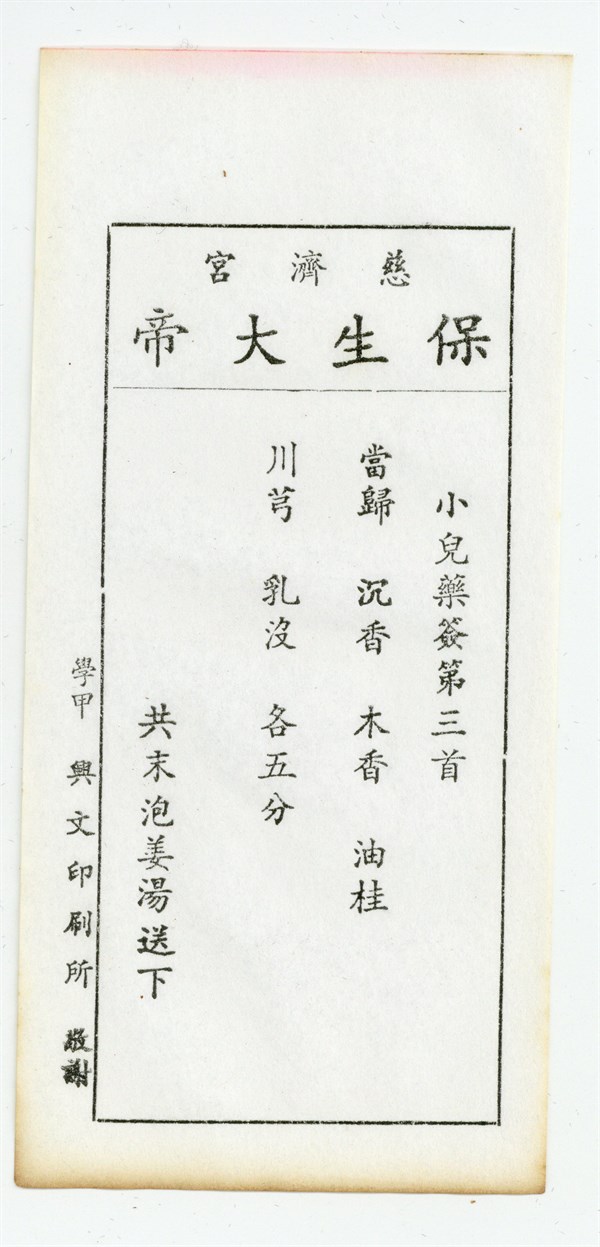 慈濟宮
保生大帝
小兒藥簽第三首
當歸　沉香　木香　油桂
川芎　乳沒　各五分
共末泡姜湯送下
學甲　興文印刷所　敬謝